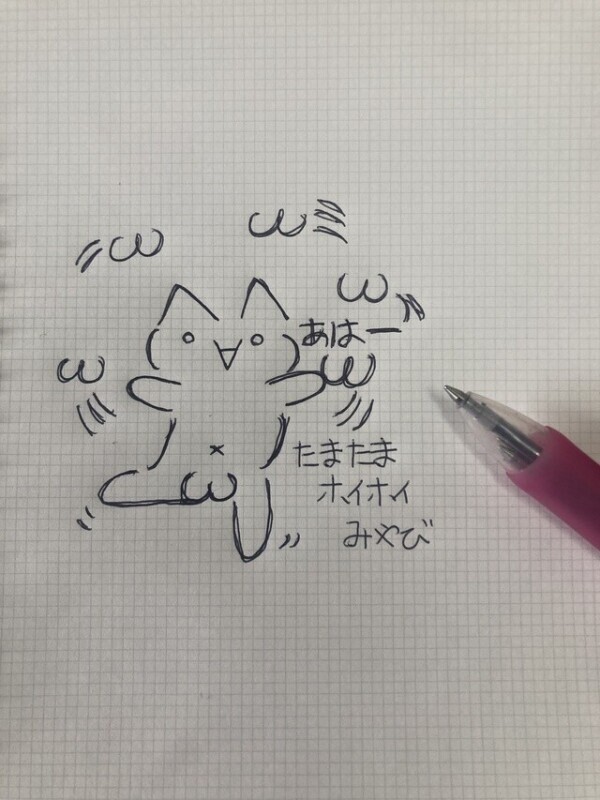 あはー
たまたま
ホイホイ
みやび